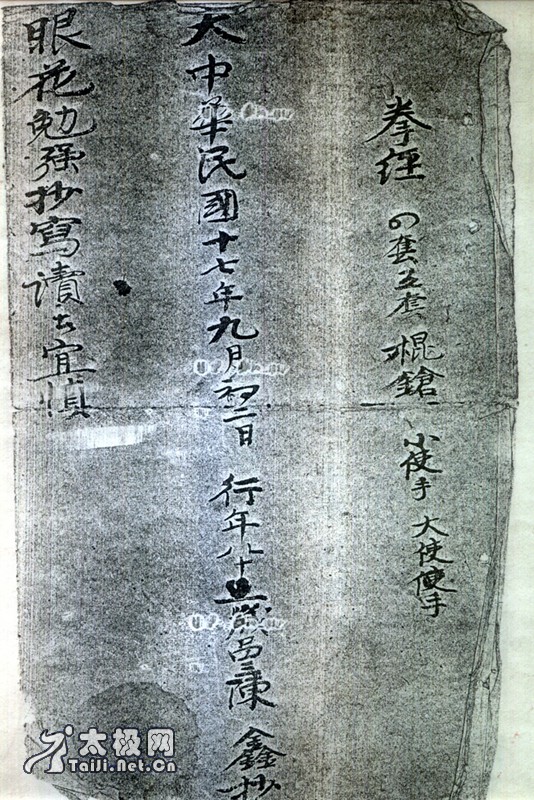 拳經 四套五套 棍鎗 小使手 大使使手
大中華民國十七年九月初二日 行年八十歲品三陳鑫抄
眼花勉强抄寫讀者宜慎
太极网
TaiJi.Net.Cn